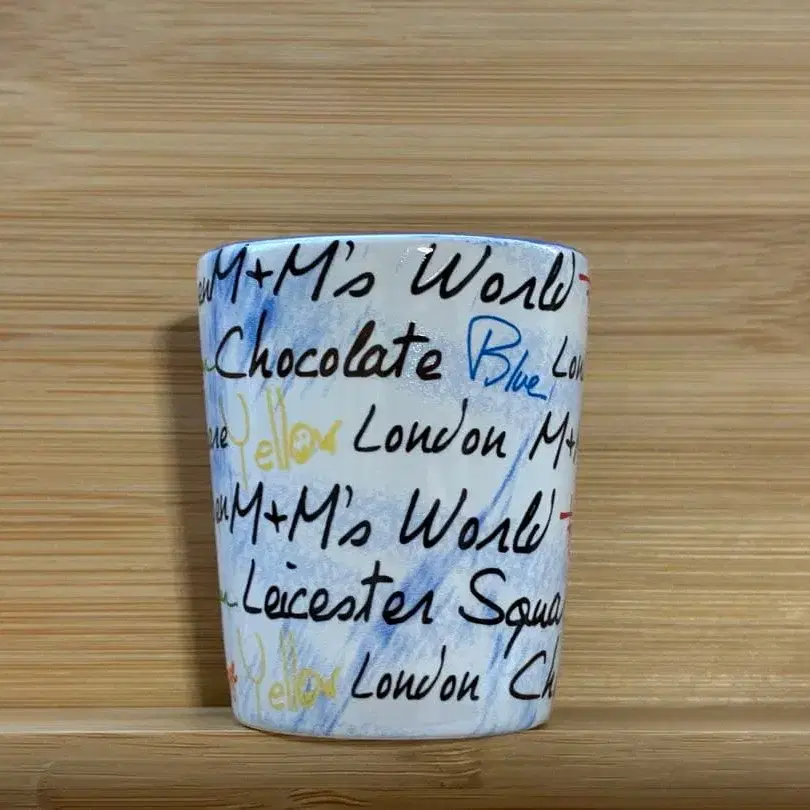 M+M's World
Chocolate Blue Lon
Yellow London M+
M+M's World
Leicester Squa
Yellow London Ch